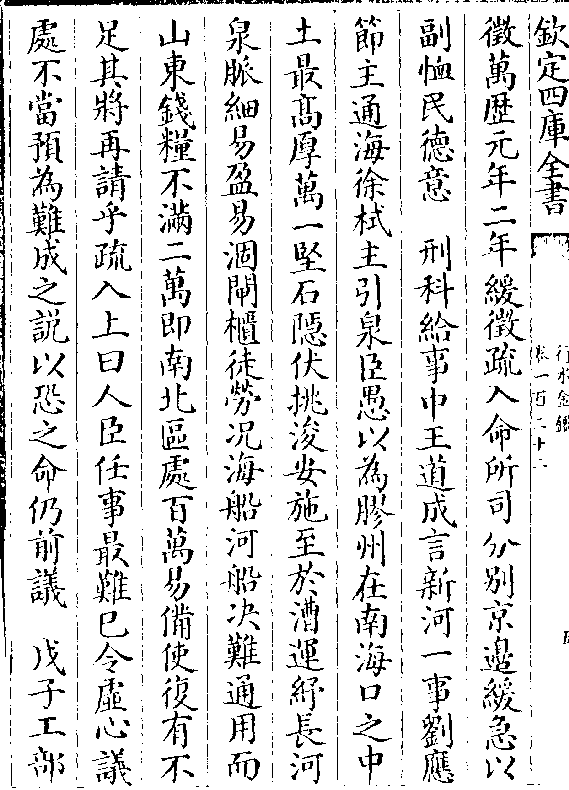 欽定四庫全書
行水金鑑
卷一百二十二
徵萬歷元年二年緩徵疏入命所司分别京邊緩急以
副恤民德意　刑科給事中王道成言新河一事劉應
節主通海徐栻主引泉臣愚以為膠州在南海口之中
土最髙厚萬一堅石隠伏挑浚安施至於漕運紆長河
泉脈細易盈易涸閘櫃徒勞况海船河船决難通用而
山東錢糧不滿二萬即南北區處百萬易備使復有不
足其將再請乎疏入上曰人臣任事最難已令虛心議
處不當預為難成之説以恐之命仍前議　戊子工部